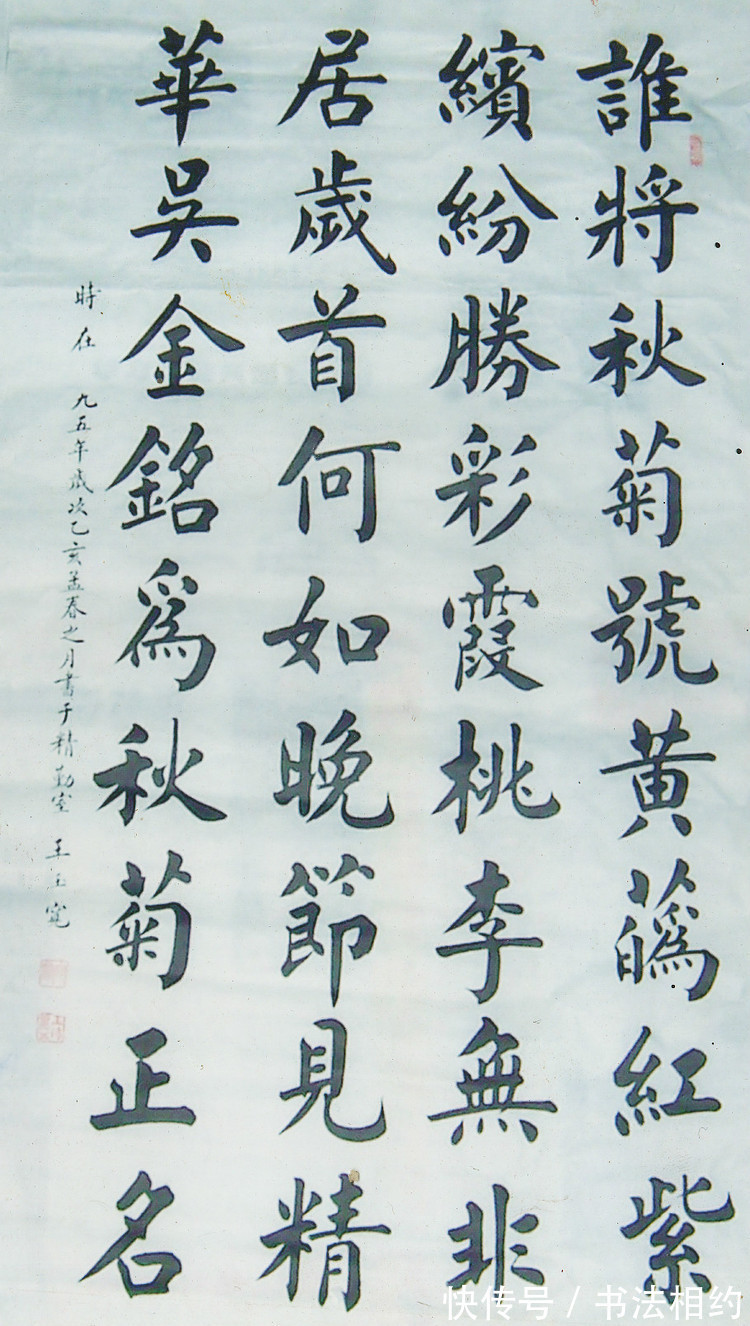 誰將秋菊號黃蘤紅紫
繽紛勝彩霞桃李無非
居歲首何如晚節見精
華吳金銘為秋菊正名
時在 九五年歲次乙亥孟春之月書于精勤室 王玉寬
快传号 / 书法相约